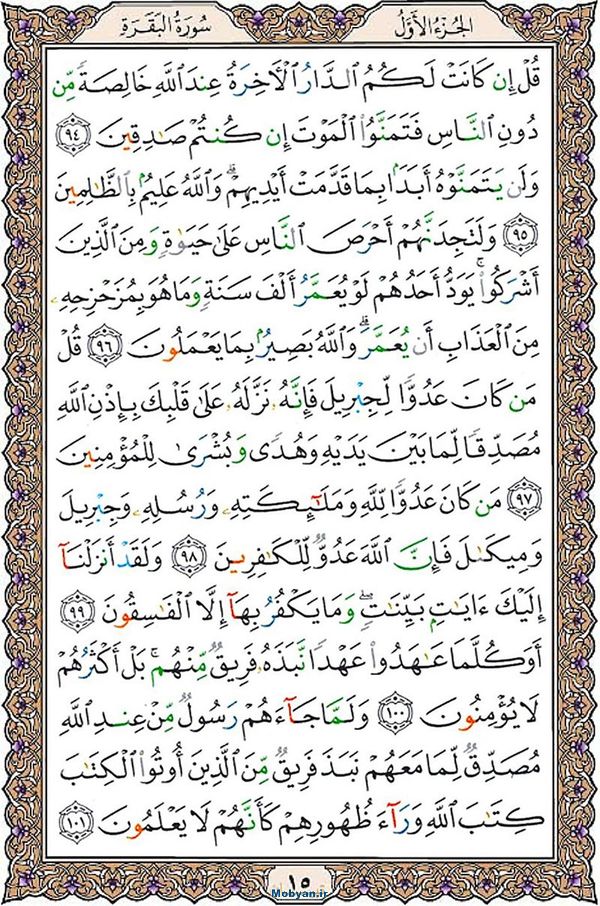 الجُزءُ الأَوَّلُ
سُورَةُ البَقَرَةِ
قُلْ إِن كَانَتْ لَكُمُ الدَّارُ الْآخِرَةُ عِندَ اللَّهِ خَالِصَةً مِّن
دُونِ النَّاسِ فَتَمَنَّوُا الْمَوْتَ إِن كُنتُمْ صَادِقِينَ ﴿٩٤﴾
وَلَن يَتَمَنَّوْهُ أَبَدًا بِمَا قَدَّمَتْ أَيْدِيهِمْ ۗ وَاللَّهُ عَلِيمٌ بِالظَّالِمِينَ
﴿٩٥﴾ وَلَتَجِدَنَّهُمْ أَحْرَصَ النَّاسِ عَلَىٰ حَيَوٰةٍ وَمِنَ الَّذِينَ
أَشْرَكُوا ۚ يَوَدُّ أَحَدُهُمْ لَوْ يُعَمَّرُ أَلْفَ سَنَةٍ وَمَا هُوَ بِمُزَحْزِحِهِ
مِنَ الْعَذَابِ أَن يُعَمَّرَ ۗ وَاللَّهُ بَصِيرٌ بِمَا يَعْمَلُونَ ﴿٩٦﴾ قُلْ
مَن كَانَ عَدُوًّا لِّجِبْرِيلَ فَإِنَّهُ نَزَّلَهُ عَلَىٰ قَلْبِكَ بِإِذْنِ اللَّهِ
مُصَدِّقًا لِّمَا بَيْنَ يَدَيْهِ وَهُدًى وَبُشْرَىٰ لِلْمُؤْمِنِينَ
﴿٩٧﴾ مَن كَانَ عَدُوًّا لِّلَّهِ وَمَلَٰئِكَتِهِ وَرُسُلِهِ وَجِبْرِيلَ
وَمِيكَىٰلَ فَإِنَّ اللَّهَ عَدُوٌّ لِّلْكَافِرِينَ ﴿٩٨﴾ وَلَقَدْ أَنزَلْنَآ
إِلَيْكَ ءَايَٰتٍ بَيِّنَٰتٍ ۖ وَمَا يَكْفُرُ بِهَآ إِلَّا الْفَاسِقُونَ ﴿٩٩﴾
أَوَكُلَّمَا عَٰهَدُوا عَهْدًا نَّبَذَهُ فَرِيقٌ مِّنْهُم ۚ بَلْ أَكْثَرُهُمْ
لَا يُؤْمِنُونَ ﴿١٠٠﴾ وَلَمَّا جَآءَهُمْ رَسُولٌ مِّنْ عِندِ اللَّهِ
مُصَدِّقٌ لِّمَا مَعَهُمْ نَبَذَ فَرِيقٌ مِّنَ الَّذِينَ أُوتُوا الْكِتَٰبَ
كِتَٰبَ اللَّهِ وَرَآءَ ظُهُورِهِمْ كَأَنَّهُمْ لَا يَعْلَمُونَ ﴿١٠١﴾
١٥
Mobyan.ir